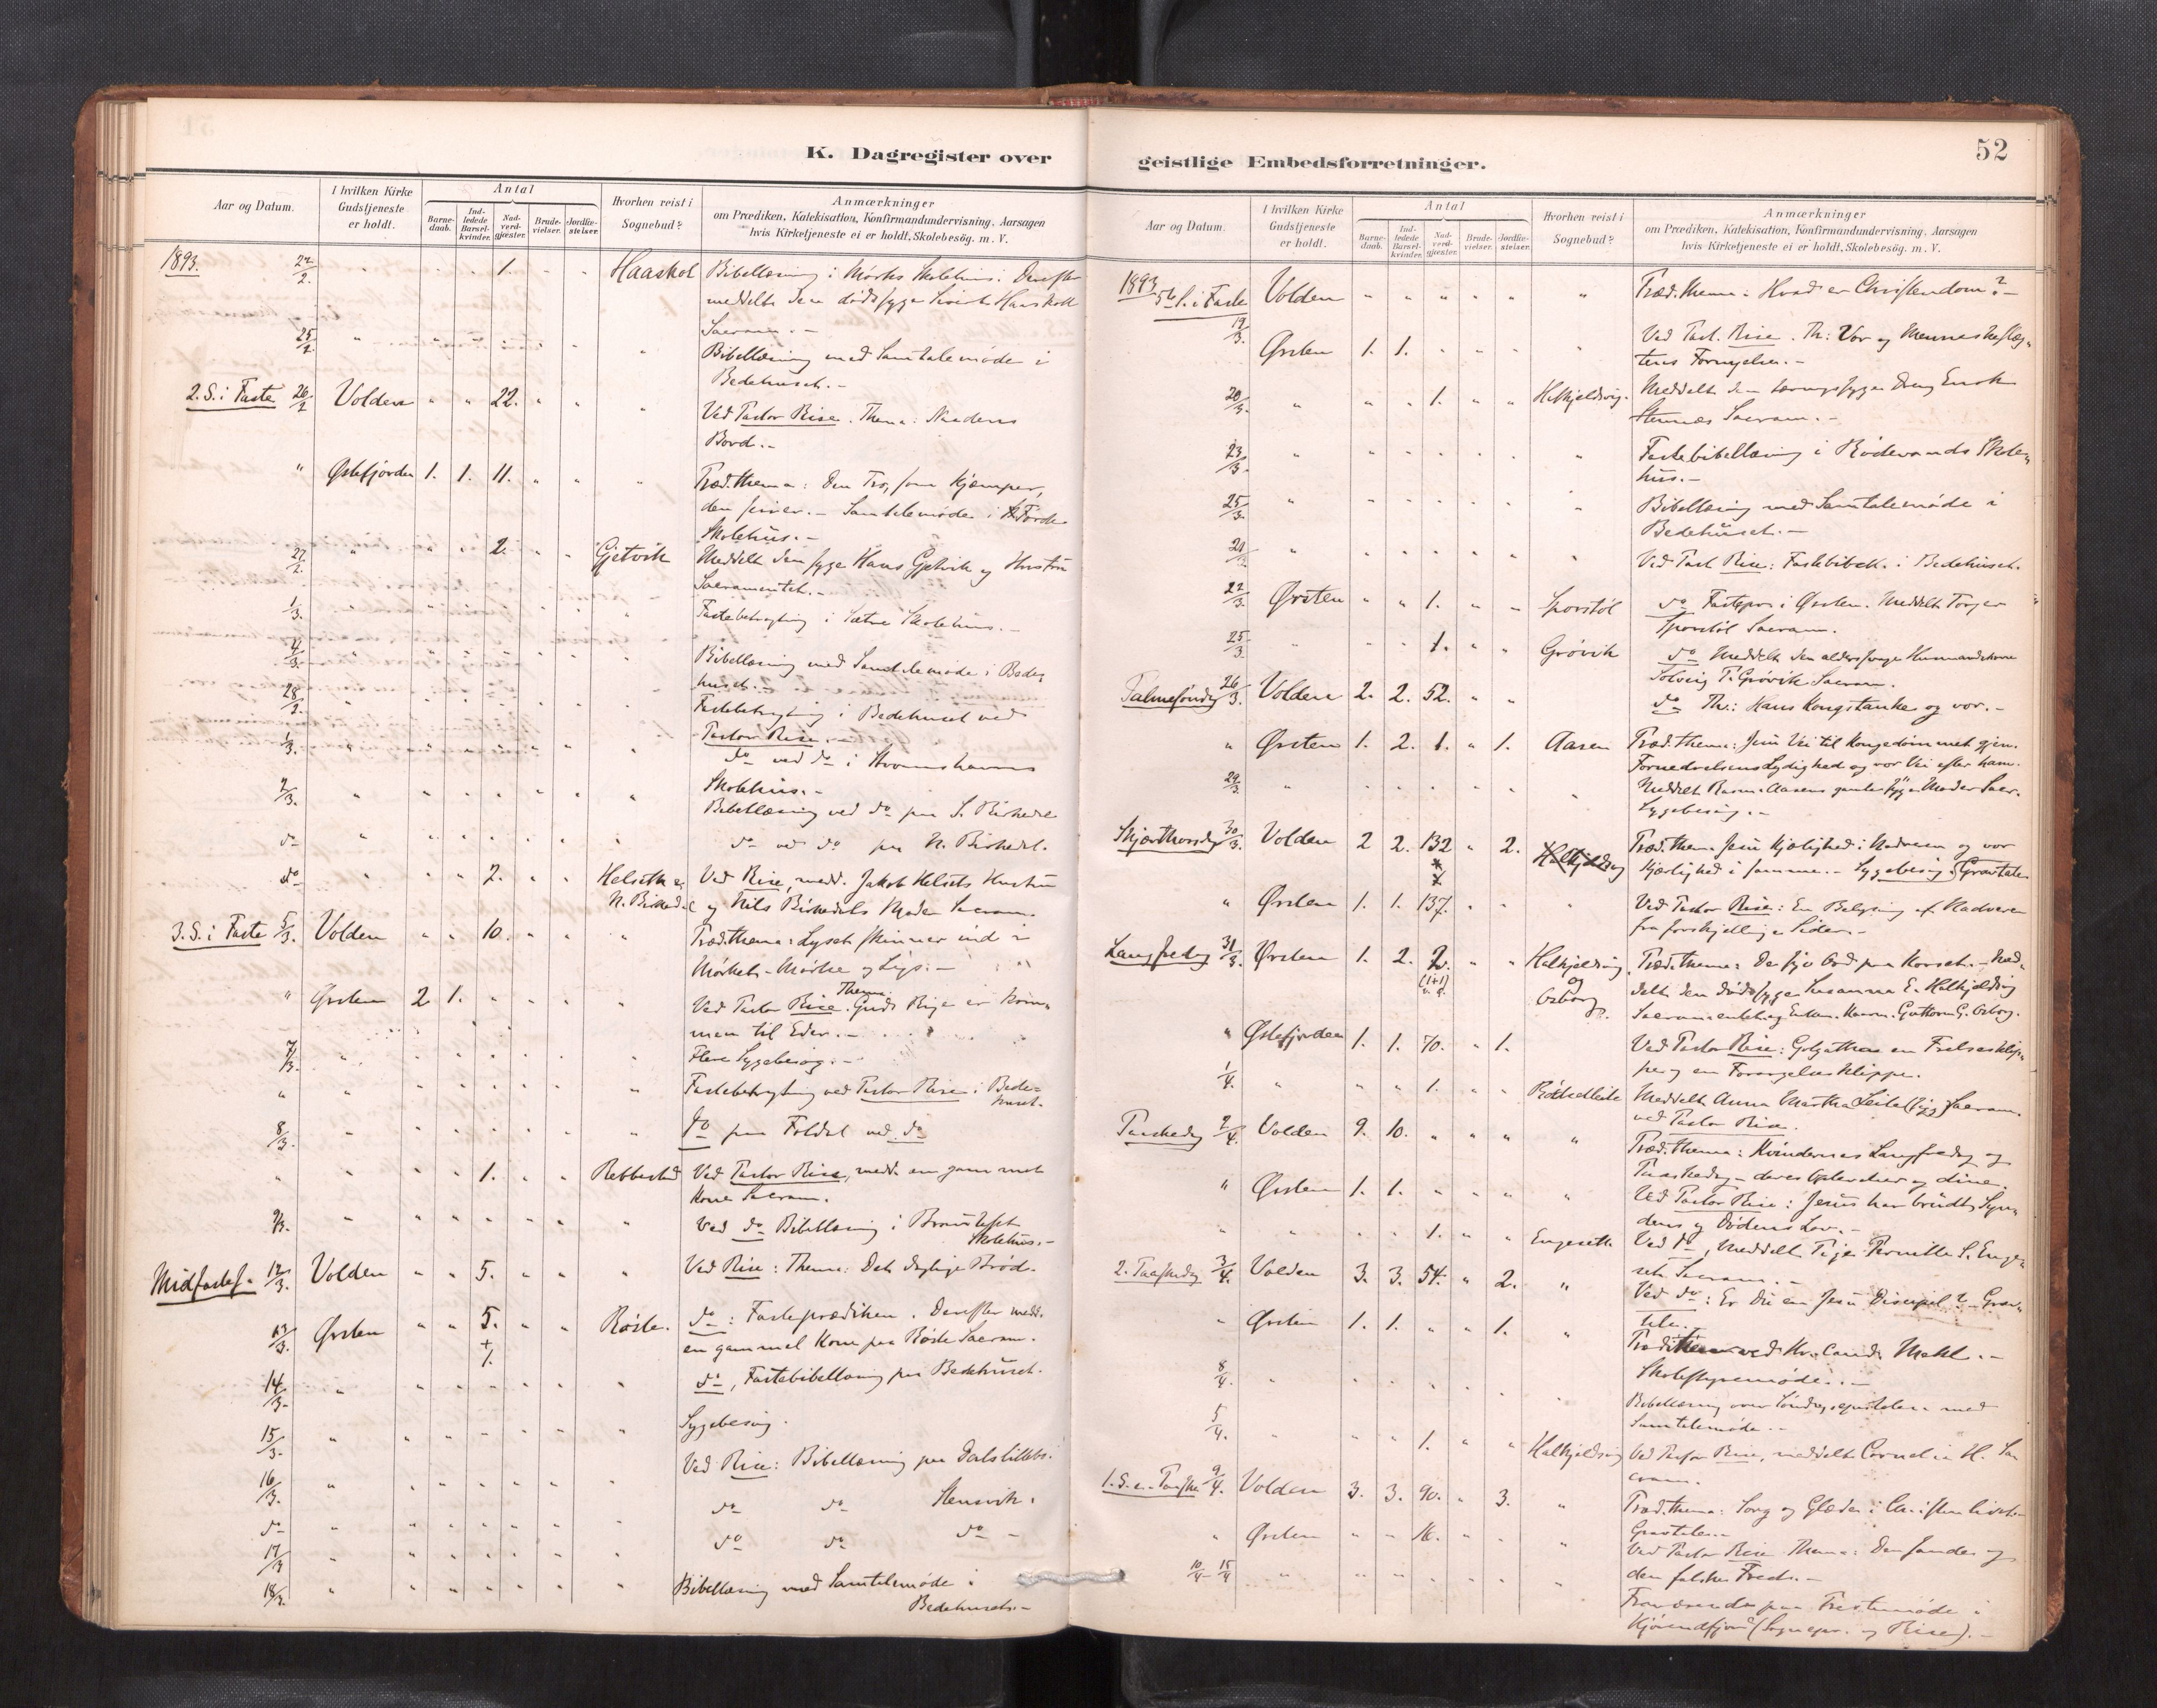 K. Dagregister over
Aar og Datum.
I hvilken Kirke
Gudstjeneste
er holdt.
Antal
Barne-
daab.
Ind-
ledede
Barsel-
kvinder.
Nad-
verd-
gjæster.
Brude-
vielser.
Jordfæ-
stelser.
Hvorhen reist i
Sognebud?
Anmærkninger
om Prædiken, Katekisation, Konfirmandundervisning, Aarsagen
hvis Kirketjeneste ei er holdt, Skolebesøg. m. V.
1893. 24/2. " " " 1. " " Haaskol Bibellæsning i Mørks Skolehus. Derefter
meddelt den dødssyge Sivert Haaskol
Sacram. -
25/2. Bibellæsning med Samtalemøde i
Bedehuset. -
2. S. i Faste 26/2 Volden " " 22. " " " Ved Pastor Rise. Thema: Naadens
Bord. -
" Østefjorden 1. 1. 11. " " " Præd. thema: Den Tro, som kjæmper,
den seirer. - Samtalemøde i Førde
Skolehus. -
27/2. " " " 2. " " Gjetvik Meddelt den syge Hans Gjetvik og Hustru
Sacramentet. -
1/3. Fastebetragtning i Sætre Skolehus. -
4/3. Bibellæsning med Samtalemøde i Bede-
huset. -
28/2. Fastebetragtning i Bedehuset ved
Pastor Rise. -
1/3. do ved do i Skolehus. -
2/3. Bibellæsning ved do paa S. Birkedal
do do ved do paa N. Birkedal.
do " " " 2. " " Helseth og
N. Birkedal
Ved Rise, medd. Jakob Helsets Hustru
og Nils Birkedals Moder Sacram.
3. S. i Faste 5/3. Volden " " 10. " " " Præd. thema: Lyset skinner ind i
Mørket - Mørke og Lys. -
" Ørsten 2 1. " " " " Ved Pastor Rise. Thema: Guds Rige er kom-
men til Eder. -
7/3. Flere Sygebesøg. -
" Fastebetragtning ved Pastor Rise i Bede-
huset.
8/3. do paa Foldal ved do
" " " " 1. " " Rebbestad Ved Pastor Rise, medd. en gammel
Kone Sacram.
9/3. Ved do Bibellæsning i
Skolehus. -
Midfastes. 12/3. Volden " " 5. " " " Ved Rise: Thema: Det daglige Brød.
13/3. Ørsten " " 5.
+
1.
" " Røste. do: Fasteprædiken. Derefter medd.
en gammel Kone paa Røste Sacram.
14/3. do, Fastebibellæsning paa Bedehuset.
Sygebesøg.
15/3. Ved Rise: Bibellæsning paa
16/3. do do Stensvik.
do do do do -
17/3
18/3. Bibellæsning med Samtalemøde i
Bedehuset. -
geistlige Embedsforretninger.
52
Aar og Datum.
I hvilken Kirke
Gudstjeneste
er holdt.
Antal
Barne-
daab.
Ind-
ledede
Barsel-
kvinder.
Nad-
verd-
gjæster.
Brude-
vielser.
Jordfæ-
stelser.
Hvorhen reist i
Sognebud?
Anmærkninger
om Prædiken, Katekisation, Konfirmandundervisning, Aarsagen
hvis Kirketjeneste ei er holdt, Skolebesøg. m. V.
1893 5te S. i Faste Volden " " " " " " Præd. thema: Hvad er Christendom? -
19/3. Ørsten 1. 1. " " " " Ved Past. Rise. Th: Vor og Menneskeslæg-
tens Fornyelse. -
20/3. " " " 1. " " Halkjeldsvig. Meddelt den tæringssyge Dreng
Sacram. -
23/3. Fastebibellæsning i Rødevands Skole-
hus. -
25/3. Bibellæsning med Samtalemøde i
Bedehuset. -
21/3. Ved Past Rise: Fastebibell. i Bedehuset.
22/3. Ørsten " " 1. " " Sporstøl do Fastepr. i Ørsten. Meddelt Torger
Sporstøl Sacram.
25/3. " " " 1. " " Grøvik do Meddelt den aldersvage
Solveig P. Grøvik Sacram.
Palmesøndag 26/3. Volden 2. 2. 52. " " do Th.: Hans Kongstanke og vor. -
" Ørsten 1. 2. 1. " 1. Aasen Præd. thema: Jesu Vei til Kongedømmet gjen.
Fornedrelsens Lydighed og vor Vei efter ham.
29/3. Meddelt Rasm. Aasens gamle syge Moder Sacr.
Sygebesøg. -
Skjærthorsdag 30/3. Volden 2 2. 132 " 2. Halkjeldsvig Præd. thema Jesu Kjærlighed i Nadveren og vor
Kjærlighed i samme. - Sygebesøg. Gravtale
" Ørsten 1. 1. 137. " " " Ved Pastor Rise: En Belysning af Nadveren
fra forskjellige Sider. -
Langfredag 31/3. Ørsten 1. 2. 2.
(1+1)
" " Halkjeldsvig
og
Osborg.
Præd. thema: De syv Ord paa Korset. - Med-
delt den dødssyge Susanna E. Halkjeldsvig
Sacramentet og Guttorm G. Osborg.
" Østefjorden 1. 1. 70. " 1. Ved Pastor Rise: Golgatha en Frelsesklip-
pe og en Forargelses Klippe.
1/4. " " " 1. " " Meddelt Anna Martha Leite (syg) Sacram.
ved Pastor Rise.
Paaskedag 2/4. Volden 9. 10. " " " " Præd. thema: Kvindernes Langfredag og
Paaskedag - deres Oplevelser og dine.
" Ørsten 1. 1. " " " " Ved Pastor Rise: Jesus har brudt Syn-
dens og Dødens Lov. -
" " " " 1. " " Engeseth Ved do, Meddelt Pige Pernille S. Enge-
seth Sacram. -
2. Paaskedag 3/4. Volden 3. 3. 54. " 2. " Ved do: Er Du en Jesu Discipel? - Grav-
tale.
" Ørsten 1. 1. " " 1. " Præd. ved Hr. Cand. Mehl. -
Skolestyremøde. -
8/4. Bibellæsning over Søndagsepistelen med
Samtalemøde. -
5/4. " " " 1. " " Halkjeldsvig Ved Pastor Rise, meddelt Cornelia H. Sa-
cram.
1. S. e. Paaske 9/4. Volden 3. 3. 90. " 3. " Præd. thema: Sorg og Glæde i Christenlivet -
Gravtale. -
" Ørsten " " 16. " " " Ved Pastor Rise Thema: Den sande og
den falske Fred. -
10/4 - 15/4 Fraværende paa Prestemøde i
(Sognepr. og Rise). -